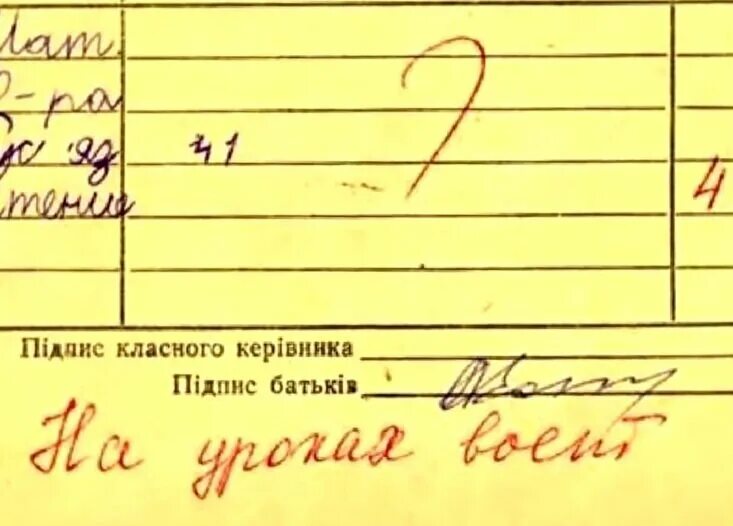 Мат.
?
-ра
яз 41
тение 4
Підпис класного керівника
Підпис батьків
На уроках воет